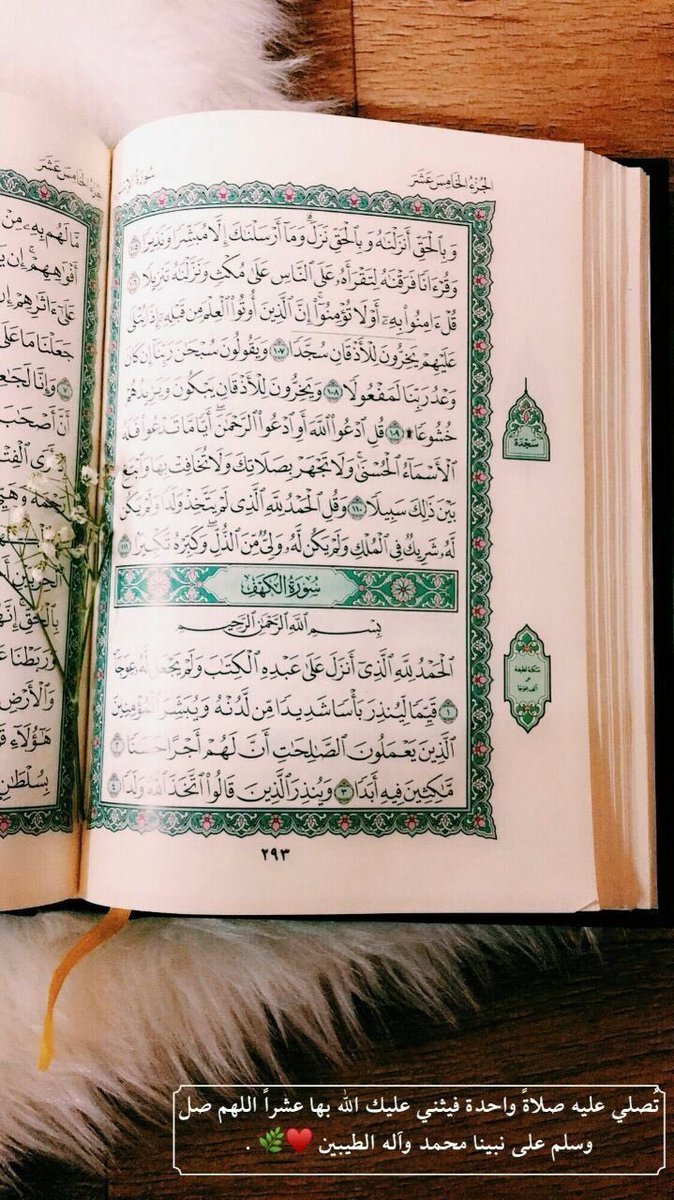 الجُزْءُ الخَامِسَ عَشَرَ
سُورَةُ
وَبِٱلْحَقِّ أَنزَلْنَٰهُ وَبِٱلْحَقِّ نَزَلَۗ وَمَآ أَرْسَلْنَٰكَ إِلَّا مُبَشِّرًا وَنَذِيرًا ١٠٥
وَقُرْءَانًا فَرَقْنَٰهُ لِتَقْرَأَهُۥ عَلَى ٱلنَّاسِ عَلَىٰ مُكْثٍ وَنَزَّلْنَٰهُ تَنزِيلًا ١٠٦
قُلْ ءَامِنُوا۟ بِهِۦٓ أَوْ لَا تُؤْمِنُوٓا۟ۚ إِنَّ ٱلَّذِينَ أُوتُوا۟ ٱلْعِلْمَ مِن قَبْلِهِۦٓ إِذَا يُتْلَىٰ
عَلَيْهِمْ يَخِرُّونَ لِلْأَذْقَانِ سُجَّدًا ١٠٧ وَيَقُولُونَ سُبْحَٰنَ رَبِّنَآ إِن كَانَ
وَعْدُ رَبِّنَا لَمَفْعُولًا ١٠٨ وَيَخِرُّونَ لِلْأَذْقَانِ يَبْكُونَ وَيَزِيدُهُمْ
خُشُوعًا ۩ ١٠٩ قُلِ ٱدْعُوا۟ ٱللَّهَ أَوِ ٱدْعُوا۟ ٱلرَّحْمَٰنَۖ أَيًّا مَّا تَدْعُوا۟ فَلَهُ
ٱلْأَسْمَآءُ ٱلْحُسْنَىٰۚ وَلَا تَجْهَرْ بِصَلَاتِكَ وَلَا تُخَافِتْ بِهَا وَٱبْتَغِ
بَيْنَ ذَٰلِكَ سَبِيلًا ١١٠ وَقُلِ ٱلْحَمْدُ لِلَّهِ ٱلَّذِى لَمْ يَتَّخِذْ وَلَدًا وَلَمْ يَكُن
لَّهُۥ شَرِيكٌ فِى ٱلْمُلْكِ وَلَمْ يَكُن لَّهُۥ وَلِىٌّ مِّنَ ٱلذُّلِّۖ وَكَبِّرْهُ تَكْبِيرًۢا ١١١
سُورَةُ الكَهْفِ
بِسْمِ ٱللَّهِ ٱلرَّحْمَٰنِ ٱلرَّحِيمِ
ٱلْحَمْدُ لِلَّهِ ٱلَّذِىٓ أَنزَلَ عَلَىٰ عَبْدِهِ ٱلْكِتَٰبَ وَلَمْ يَجْعَل لَّهُۥ عِوَجَاۜ
١ قَيِّمًا لِّيُنذِرَ بَأْسًا شَدِيدًا مِّن لَّدُنْهُ وَيُبَشِّرَ ٱلْمُؤْمِنِينَ
ٱلَّذِينَ يَعْمَلُونَ ٱلصَّٰلِحَٰتِ أَنَّ لَهُمْ أَجْرًا حَسَنًا ٢
مَّٰكِثِينَ فِيهِ أَبَدًا ٣ وَيُنذِرَ ٱلَّذِينَ قَالُوا۟ ٱتَّخَذَ ٱللَّهُ وَلَدًا ٤
٢٩٣
سَجْدَة
سَكتَة لطيفَة
عَلى
ألف عِوَجَا
الخَامِسَ عَشَرَ
مَّا لَهُم بِهِۦ مِنْ
أَفْوَٰهِهِمْۚ إِن
عَلَىٰٓ ءَاثَٰرِهِمْ إِن
جَعَلْنَا مَا عَلَى
وَإِنَّا
أَنَّ أَصْحَٰبَ
رَحْمَةً
ٱلْحِزْبَيْنِ
بِٱلْحَقِّۚ
وَرَبَطْنَا
وَٱلْأَرْضِ
هَٰٓؤُلَآءِ
بِسُلْطَٰنٍ
تُصلي عليه صلاةً واحدة فيثني عليك الله بها عشراً اللهم صل
وسلم على نبينا محمد وآله الطيبين ♥️🌿 .